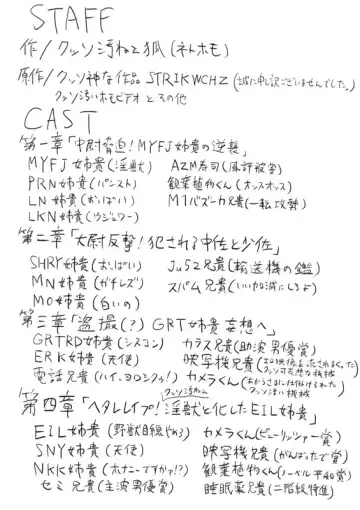 STAFF
作/クッソ汚ねえ狐(ネトホモ)
原作/クッソ神な作品 STRIKWCHZ(誠に申し訳ございませんでした。)
クッソ汚いホモビデオとその他
CAST
第一章「中尉脅迫!MYFJ姉貴の逆襲」
MYFJ姉貴(淫獣) AZM寿司(風評被害)
PRN姉貴(パンスト) 観葉植物くん(オッスオッス)
LN姉貴(おっぱい) M1バズーカ兄貴(一転攻勢)
LKN姉貴(ウジュワー)
第二章「大尉反撃!犯される中佐と少佐」
SHRY姉貴(おっぱい) Ju52兄貴(輸送機の鑑)
MN姉貴(ガチレズ) スパム兄貴(いい加減にしろよ)
MO姉貴(白いの)
第三章「盗撮(?)GRT姉貴妄想へ」
GRTRD姉貴(シスコン) カラス兄貴(助演男優賞)
ERK姉貴(天使) 映写機兄貴(エロ映像を流されまくったクッソ可哀想な機械)
電話兄貴(ハイ、ヨロシクゥ!) カメラくん(あからさまに仕掛けられたクッソ汚い機械)
第四章「ヘタレレイプ!クッソ汚い淫獣と化したEIL姉貴」
EIL姉貴(野獣目線やめろ) カメラくん(ピューリッツァー賞)
SNY姉貴(天使) 映写機兄貴(がんばったで賞)
NKK姉貴(オナニーですかぁ!?) 観葉植物くん(ノーベル平和賞)
セミ兄貴(主演男優賞) 睡眠薬兄貴(二階級特進)